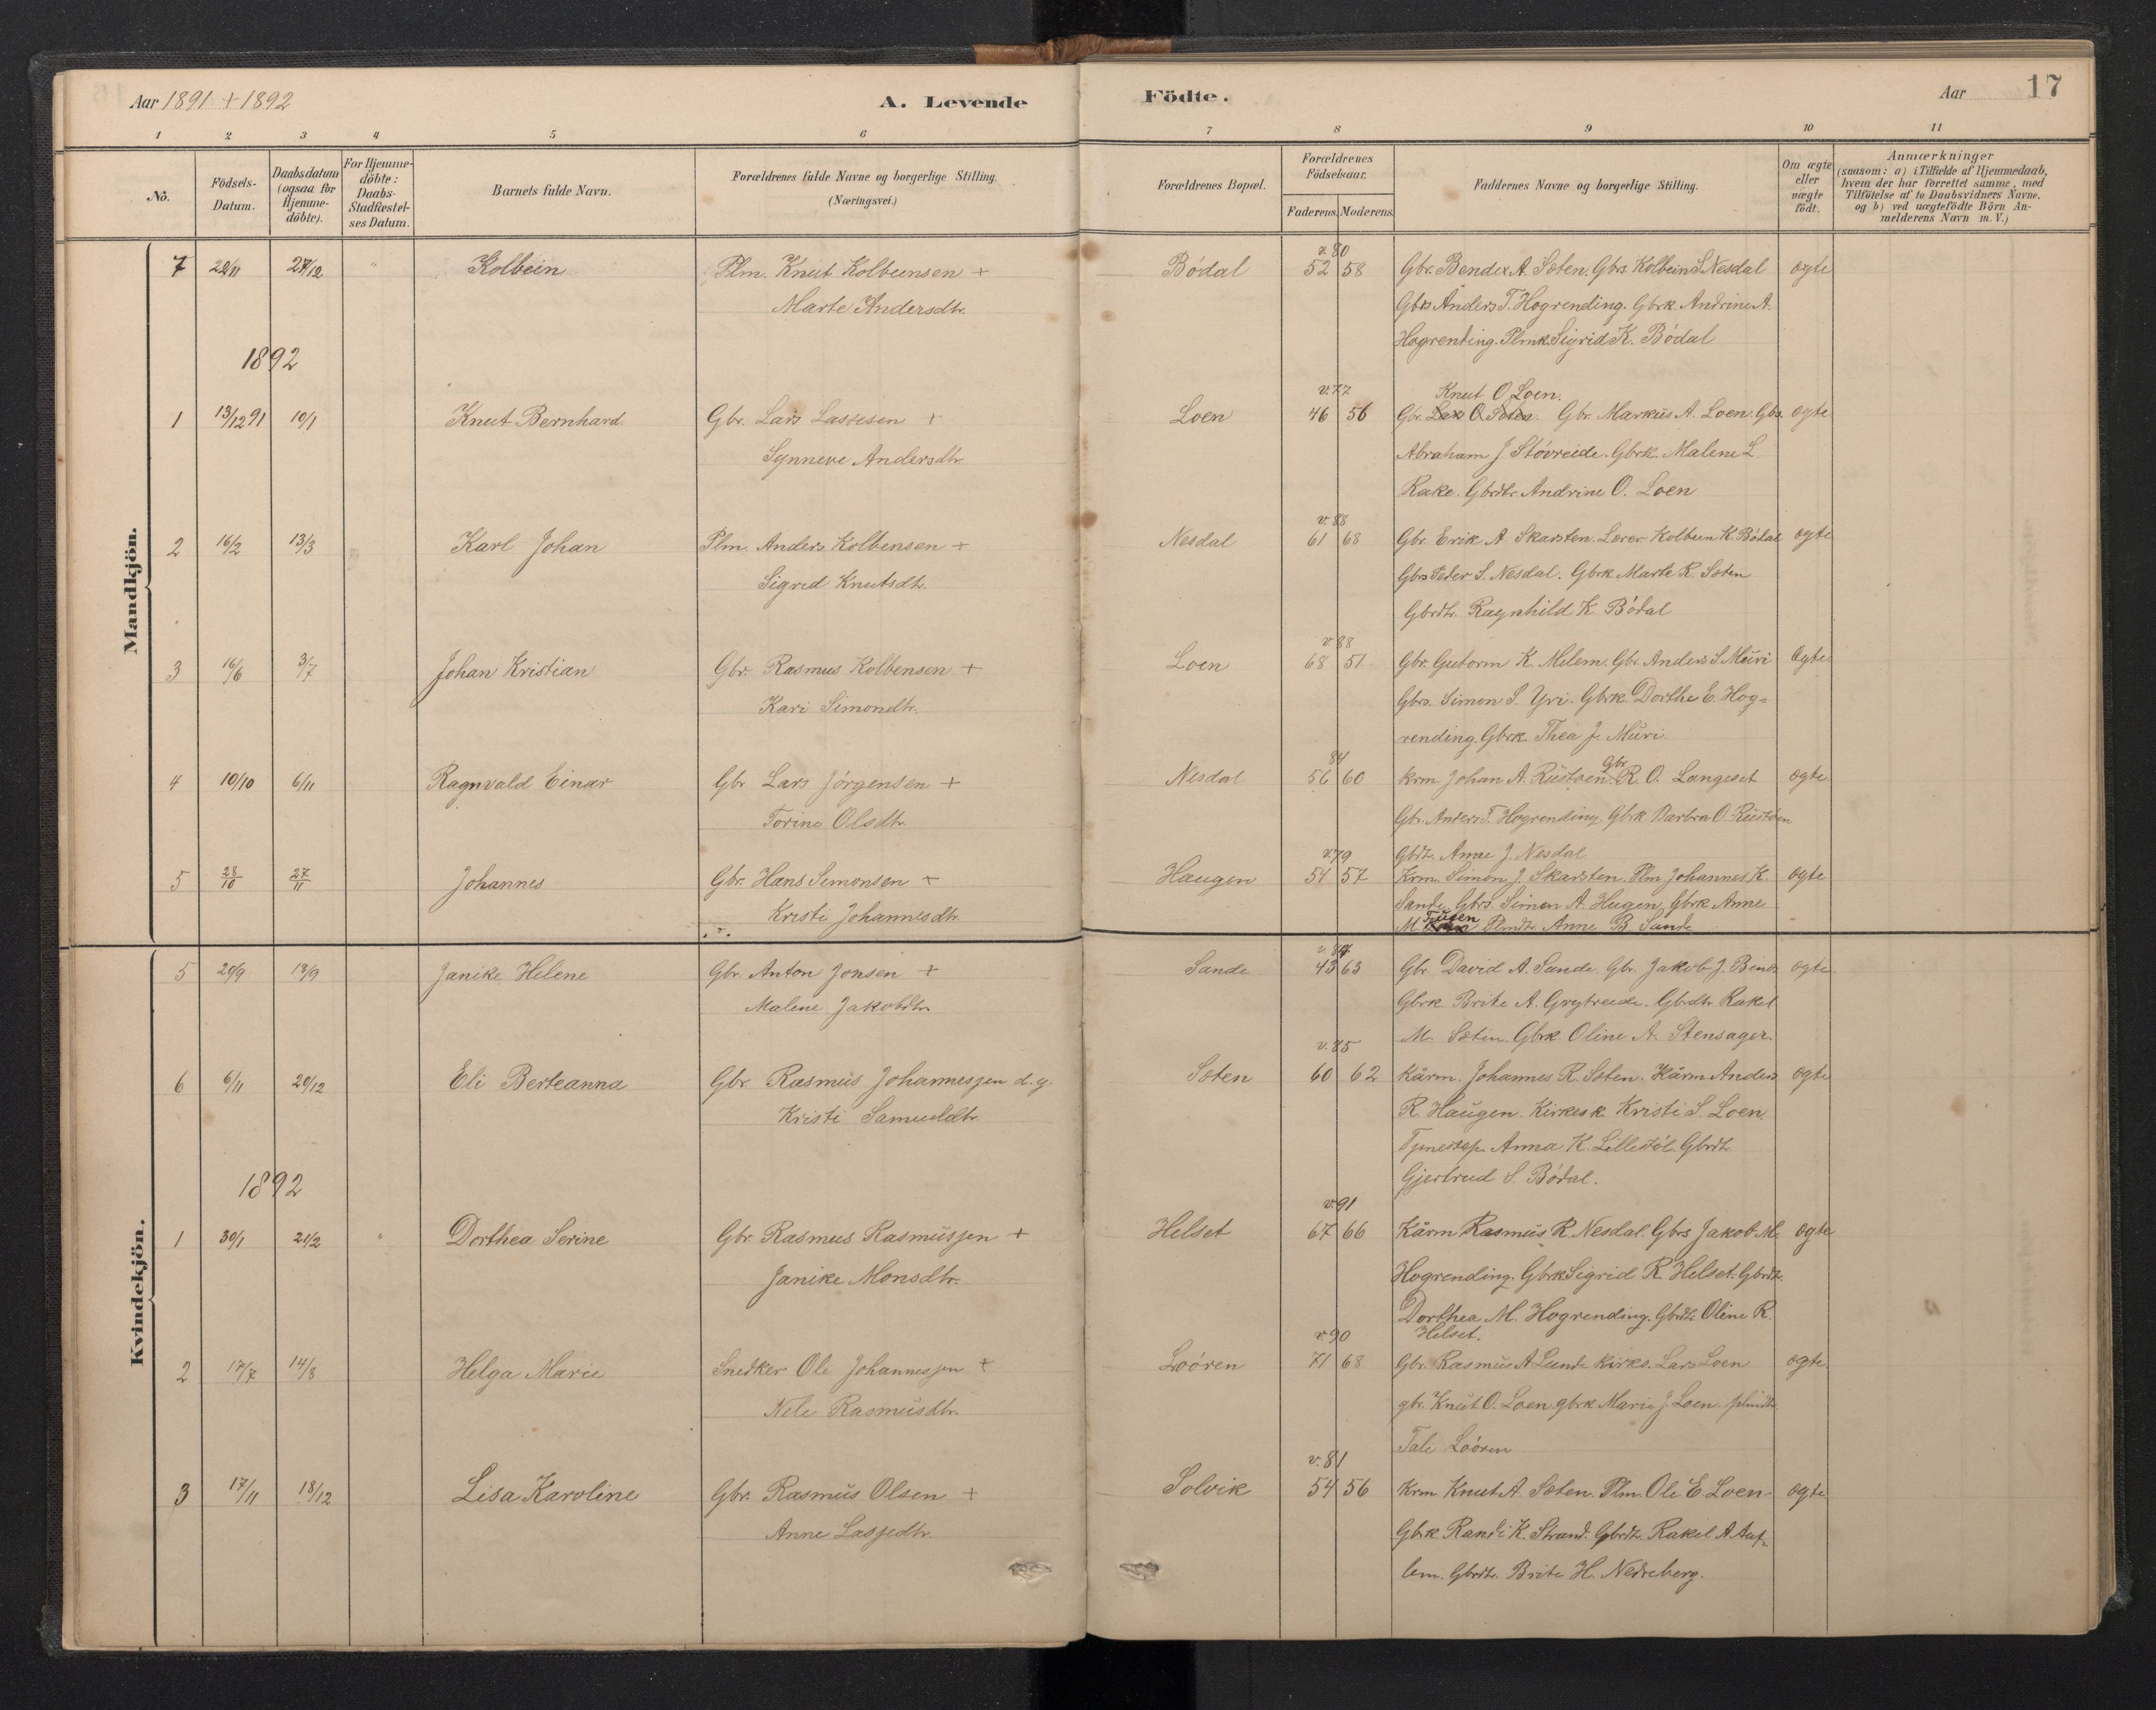 Aar 1891 + 1892
A. Levende
Födte.
Aar
17
1 2 3 4 5 6 7 8 9 10 11
No.
Födsels-
Datum.
Daabsdatum
(ogsaa for
Hjemme-
döbte).
For Hjemme-
döbte:
Daabs-
Stadfæstel-
ses Datum.
Barnets fulde Navn.
Forældrenes fulde Navne og borgerlige Stilling.
(Næringsvei.)
Forældrenes Bopæl.
Forældrenes
Födselsaar.
Faderens. Moderens.
Faddernes Navne og borgerlige Stilling.
Om ægte
eller
uægte
födt.
Anmærkninger
(saasom: a) i Tilfælde af Hjemmedaab,
hvem der har forrettet samme, med
Tilföielse af to Daabsvidners Navne,
og b) ved uægtefödte Börn An-
melderens Navn m. V.)
Mandkjön.
v. 80
7 22/11 27/12 " Kolbein Plm. Knut Kolbeinsen + Bódal 52 58 Gbr. Bendix A. Sæten. Gbrs. Kolbein S. Nesdal ægte
Marte Andersdtr. Gbr. Anders T. Hogrending. Gbrk. Andrine A.
Hogrending. Plmk. Sigrid K. Bódal
1892
v. 77 Knut O. Loen.
1 13/12 91 10/1 Knut Bernhard. Gbr. Lars Lassesen + Loen 46 56 Gbr. Gbr. Markus A. Loen. Gbs. ægte
Synneve Andersdtr. Abraham J. Stóvreide. Gbrk. Malene L.
Rake. Gbrdtr. Andrine O. Loen
v. 88
2 16/2 13/3 Karl Johan Plm. Anders Kolbensen + Nesdal 61 68 Gbr. Erik A Skarsten. Lærer Kolbein K Bódal ægte
Sigrid Knutsdtr. Gbrs Peder S. Nesdal. Gbrk Marte R. Sæten
Gbrdtr. Ragnhild K Bódal
v. 88
3 16/6 3/7 Johan Kristian Gbr. Rasmus Kolbensen + Loen 68 51 Gbr. Gutorm K. Melem. Gbr. Anders S. Muri ægte
Kari Simondtr. Gbrs. Simon S. Yri. Gbrk. Dorthe E. Hog=
rending. Gbrk. Thea J. Muri.
84 Gbr.
4 10/10 6/11 Ragnvald Einar Gbr Lars Jórgensen + Nesdal 56 60 Krm. Johan A. Rustøen. R. O. Langeset ægte
Torine Olsdtr. Gbr. Anders T. Hogrending. Gbrk Barbra O. Rustóen
v. 79 Gbdtr. Anne J. Nesdal
5 28/10 27/11 Johannes Gbr. Hans Simonsen + Haugen 54 57 Krm. Simon J. Skarsten. Plm Johannes K. ægte
Kristi Johannesdtr. Sande. Gbrs. Simon A. Hugen, Gbrk Anne
M. Tusen Plmdtr. Anne B. Sande
Kvindekjön.
5 20/9 18/9 Janike Helene Gbr. Anton Jonsen + Sande 43 63 Gbr. David A. Sande. Gbr. Jakob J. ægte.
Malene Jakobdtr. Gbrk. Brite A. Grytreide. Gbrdtr. Rakel
M. Sæten. Gbrk. Oline A. Stensager.
v. 85
6 6/11 20/12 Eli Berteanna Gbr. Rasmus Johannessen d. y. Sæten 60 62 Kårm. Johannes R. Sæten. Kårm. Anders ægte
Kristi Samueldtr. R. Haugen. Kirkesk. Kristi S. Loen.
Anna K. Lillestól. Gbrdtr.
Gjertrud S. Bódal.
1892
v. 91
1 30/1 21/2 " Dorthea Serine Gbr. Rasmus Rasmussen + Helset 67 66 Kårm Rasmus R. Nesdal. Gbrs Jakob M. ægte
Janike Monsdtr. Hogrending. Gbrk Sigrid R. Helset. Gbrdtr.
Dorthea M. Hogrending. Gbrdtr. Oline R.
v. 90 Helset.
2 17/7 14/8 Helga Marie Snedker Ole Johannessen + Loóren 71 68 Gbr. Rasmus A Lunde Kirkes. Lars Loen ægte
Nele Rasmusdtr. gbr. Knut O. Loen. gbrk Marie J. Loen. plmdtr.
Tale Loóren
v. 81
3 17/11 18/12 Lisa Karoline Gbr. Rasmus Olsen + Solvik 54 56 Krm Knut A. Sæten. Plm. Ole E. Loen. ægte
Anne Lassedtr. Gbrk Randi K. Strand. Gbrdtr. Rakel A Auf=
lem. Gbrdtr. Brite H. Nedreberg.